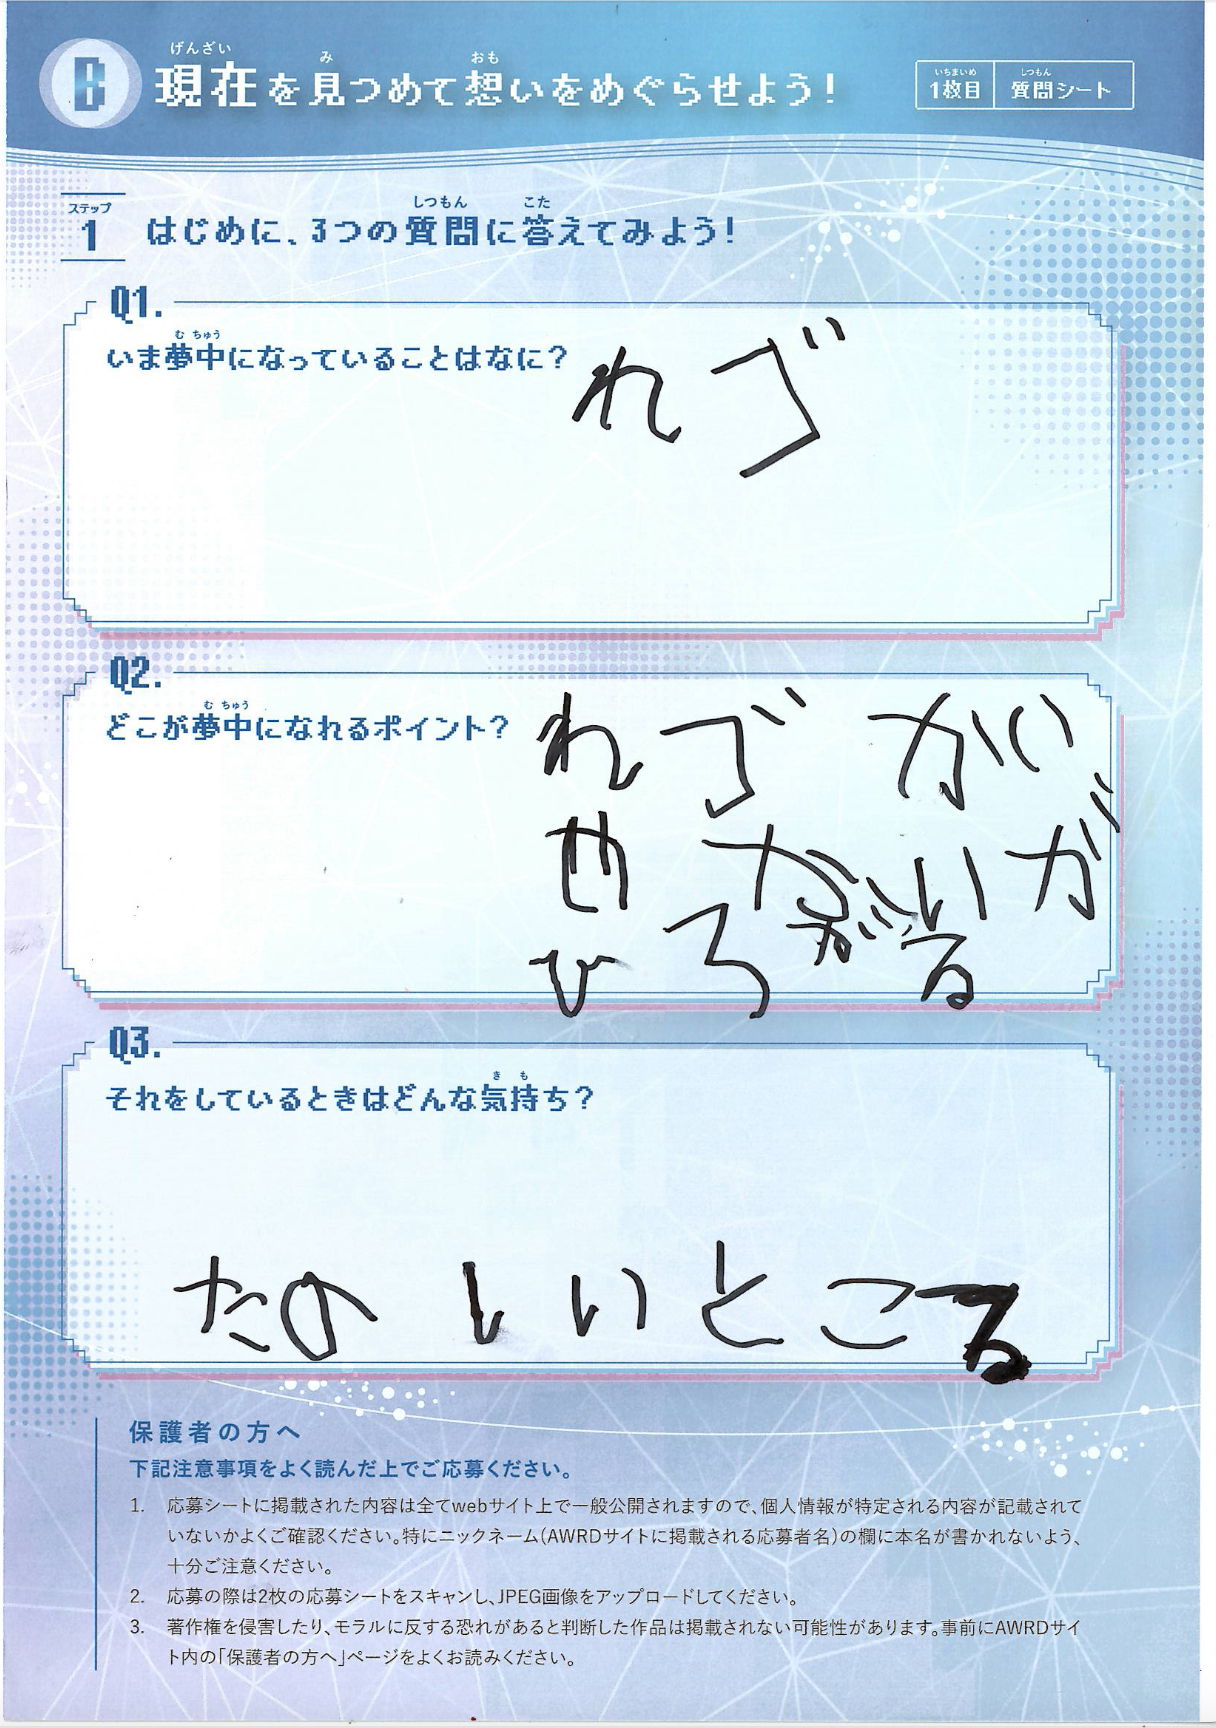 B
げんざい み おも
現在を見つめて想いをめぐらせよう!
いちまいめ しつもん
1枚目 質問シート
ステップ
1
しつもん こた
はじめに、3つの質問に答えてみよう!
Q1.
む ちゅう
いま夢中になっていることはなに?
れゴ
Q2.
む ちゅう
どこが夢中になれるポイント?
れゴ かい
せかいが
ひろがる
Q3.
き も
それをしているときはどんな気持ち?
たのしいところ
保護者の方へ
下記注意事項をよく読んだ上でご応募ください。
1. 応募シートに掲載された内容は全てwebサイト上で一般公開されますので、個人情報が特定される内容が記載されて
いないかよくご確認ください。特にニックネーム(AWRDサイトに掲載される応募者名)の欄に本名が書かれないよう、
十分ご注意ください。
2. 応募の際は2枚の応募シートをスキャンし、JPEG画像をアップロードしてください。
3. 著作権を侵害したり、モラルに反する恐れがあると判断した作品は掲載されない可能性があります。事前にAWRDサイ
ト内の「保護者の方へ」ページをよくお読みください。